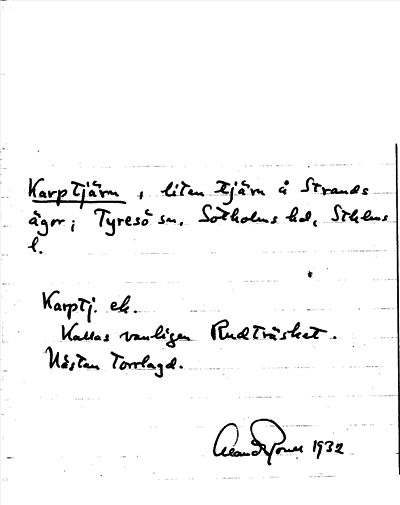 Karptjärn, liten tjärn å Strands
ägor; Tyresö sn. Sotholms hd, Sthlms
l.
Karptj. ek.
Kallas vanligen Rudträsket.
Nästan Torrlagd.
1932